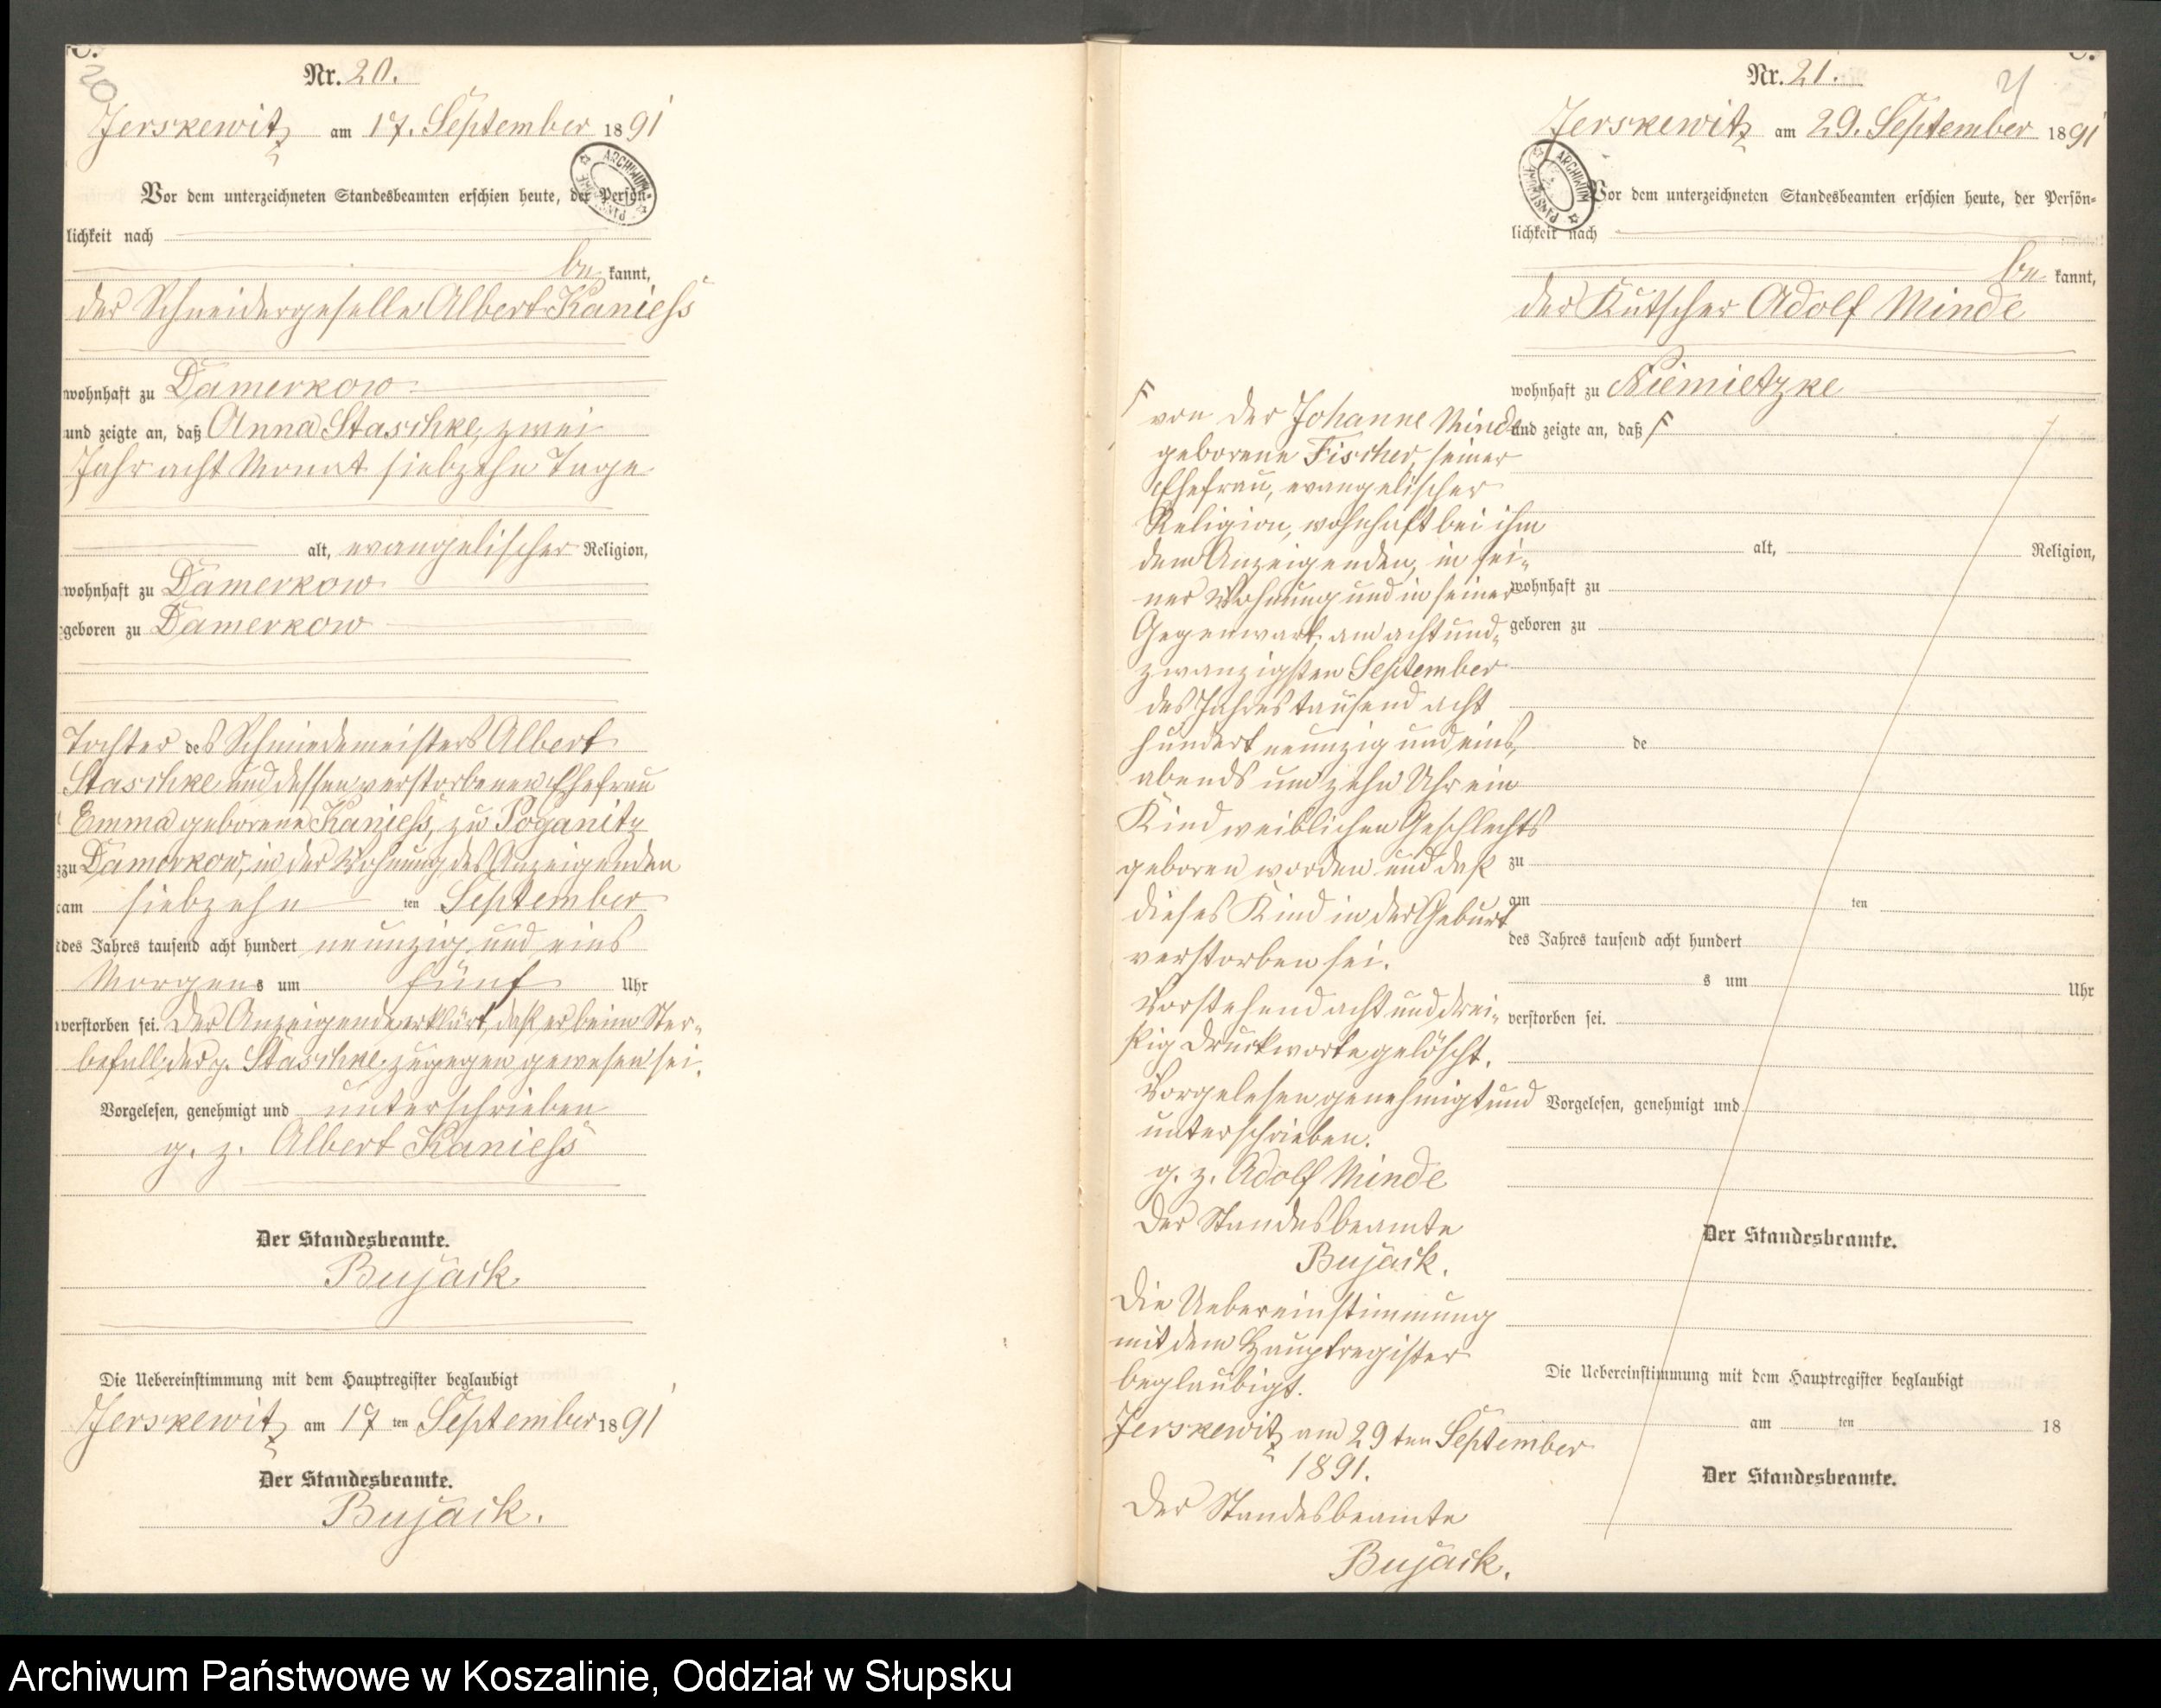 20
Nr. 20.
Jerskewitz am 17. September 1891
ARCHIWUM PAŃSTWOWE
Vor dem unterzeichneten Standesbeamten erschien heute, der Persön-
lichkeit nach
be kannt,
der Schneidergeselle Albert Kaniess
wohnhaft zu Damerkow
und zeigte an, daß Anna Staschke, zwei
Jahr acht Monat siebzehn Tage
alt, evangelischer Religion,
wohnhaft zu Damerkow
geboren zu Damerkow
Tochter des Schmiedemeisters Albert
Staschke und dessen verstorbenen Ehefrau
Emma geborene Kaniess, zu Poganitz
zu Damerkow, in der Wohnung des Anzeigenden
am siebzehn ten September
des Jahres tausend acht hundert neunzig und eins
Morgens um fünf Uhr
verstorben sei. Der Anzeigende erklärt, daß er beim Ster-
befall der p. Staschke zugegen gewesen sei.
Vorgelesen, genehmigt und unterschrieben
g. z. Albert Kaniess
Der Standesbeamte.
Bujack.
Die Uebereinstimmung mit dem Hauptregister beglaubigt
Jerskewitz am 17 ten September 1891
Der Standesbeamte.
Bujack.
Nr. 21.
21
Jerskewitz am 29. September 1891
ARCHIWUM PAŃSTWOWE
Vor dem unterzeichneten Standesbeamten erschien heute, der Persön-
lichkeit nach
be kannt,
der Kutscher Adolf Minde
wohnhaft zu Niemietzke
und zeigte an, daß F
alt, Religion,
wohnhaft zu
geboren zu
de
zu
am ten
des Jahres tausend acht hundert
s um Uhr
verstorben sei.
Vorgelesen, genehmigt und
Der Standesbeamte.
Die Uebereinstimmung mit dem Hauptregister beglaubigt
am ten 18
Der Standesbeamte.
F von der Johanne Minde
geborene Fischer, seiner
Ehefrau, evangelischer
Religion, wohnhaft bei ihm
dem Anzeigenden, in sei-
ner Wohnung und in seiner
Gegenwart, am acht und-
zwanzigsten September
des Jahres tausend acht
hundert neunzig und eins,
abends um zehn Uhr ein
Kind weiblichen Geschlechts
geboren worden und daß
dieses Kind in der Geburt
verstorben sei.
Vorstehend acht und drei-
ßig Druckworte gelöscht.
Vorgelesen genehmigt und
unterschrieben.
g. z. Adolf Minde
Der Standesbeamte
Bujack.
Die Uebereinstimmung
mit dem Hauptregister
beglaubigt.
Jerskewitz am 29 ten September
1891.
Der Standesbeamte
Bujack.
Archiwum Państwowe w Koszalinie, Oddział w Słupsku